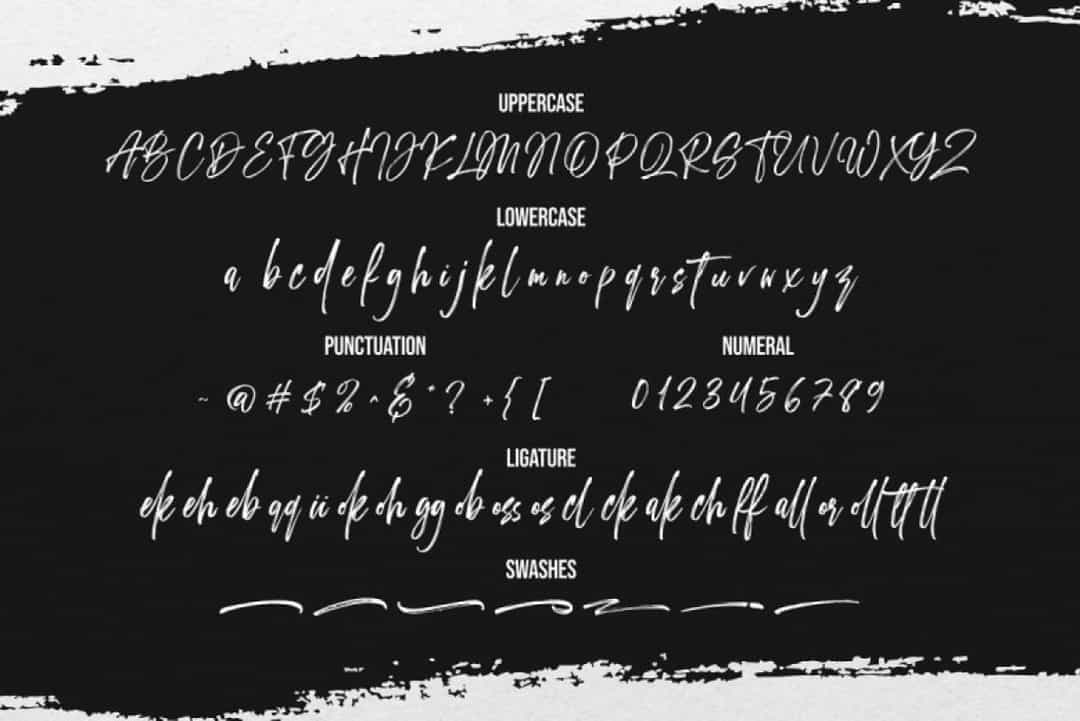 UPPERCASE
ABCDEFGHIJKLMNOPQRSTUVWXYZ
LOWERCASE
a bcdefghijklmnopqrstuvwxyz
PUNCTUATION
~ @ # $ % ^ & * ? + { [
NUMERAL
0123456789
LIGATURE
ek eh eb qq ii ok oh gg ob oss os cl ck ak ch ff all or oll tt ll
SWASHES